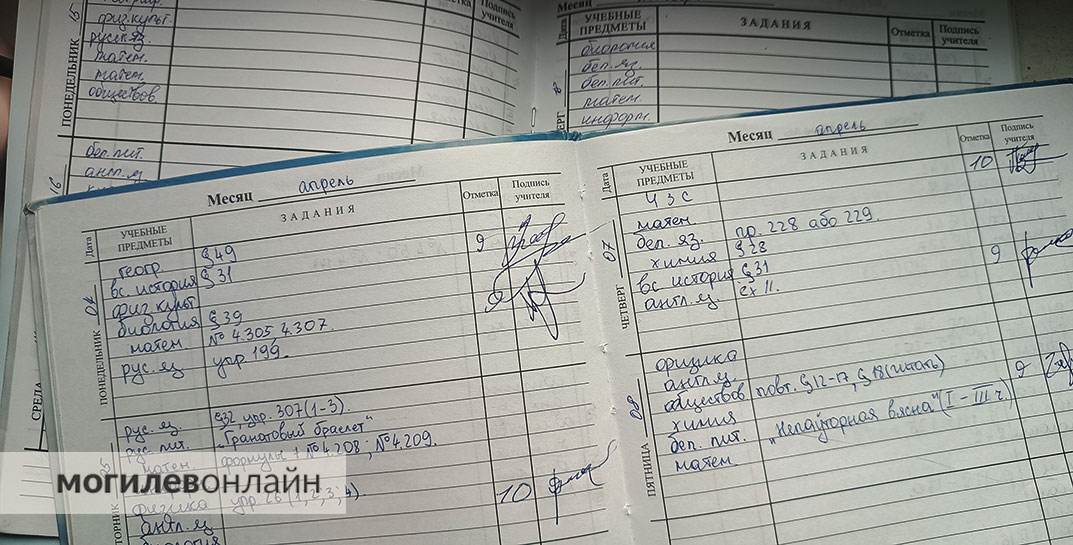 15
ПОНЕДЕЛЬНИК
физ.культ.
русск.яз.
матем.
матем.
обществов.
Подпись
учителя
16
бел.лит.
англ.яз
СРЕДА
Месяц
УЧЕБНЫЕ
ПРЕДМЕТЫ
ЗАДАНИЯ
Отметка
Подпись
учителя
биология
бел.яз.
бел.лит.
матем.
информ.
Месяц апрель
Дата
УЧЕБНЫЕ
ПРЕДМЕТЫ
ЗАДАНИЯ
Отметка
Подпись
учителя
04
ПОНЕДЕЛЬНИК
геогр §49 9
вс. история §31
физ культ 9
биология §39
матем № 4.305, 4.307.
рус. яз упр 199.
рус. яз. §32, упр. 307(1-3).
рус лит. „Гранатовый браслет"
матем формулы! №4.208, №4.209.
физика упр 26(1,2,3,4). 10
англ. яз
биология
Месяц апрель
Дата
УЧЕБНЫЕ
ПРЕДМЕТЫ
ЗАДАНИЯ
Отметка
Подпись
учителя
07
ЧЕТВЕРГ
ЧЗС 10
матем
бел. яз. пр. 228 або 229
химия §28
вс история §31 9
англ. яз ex 11.
08
ПЯТНИЦА
физика
англ.яз.
обществов повт. §12-17, §18(читать) 9
химия
бел. лит. „Непаўторная вясна" (I - III ч.)
матем
могилевонлайн